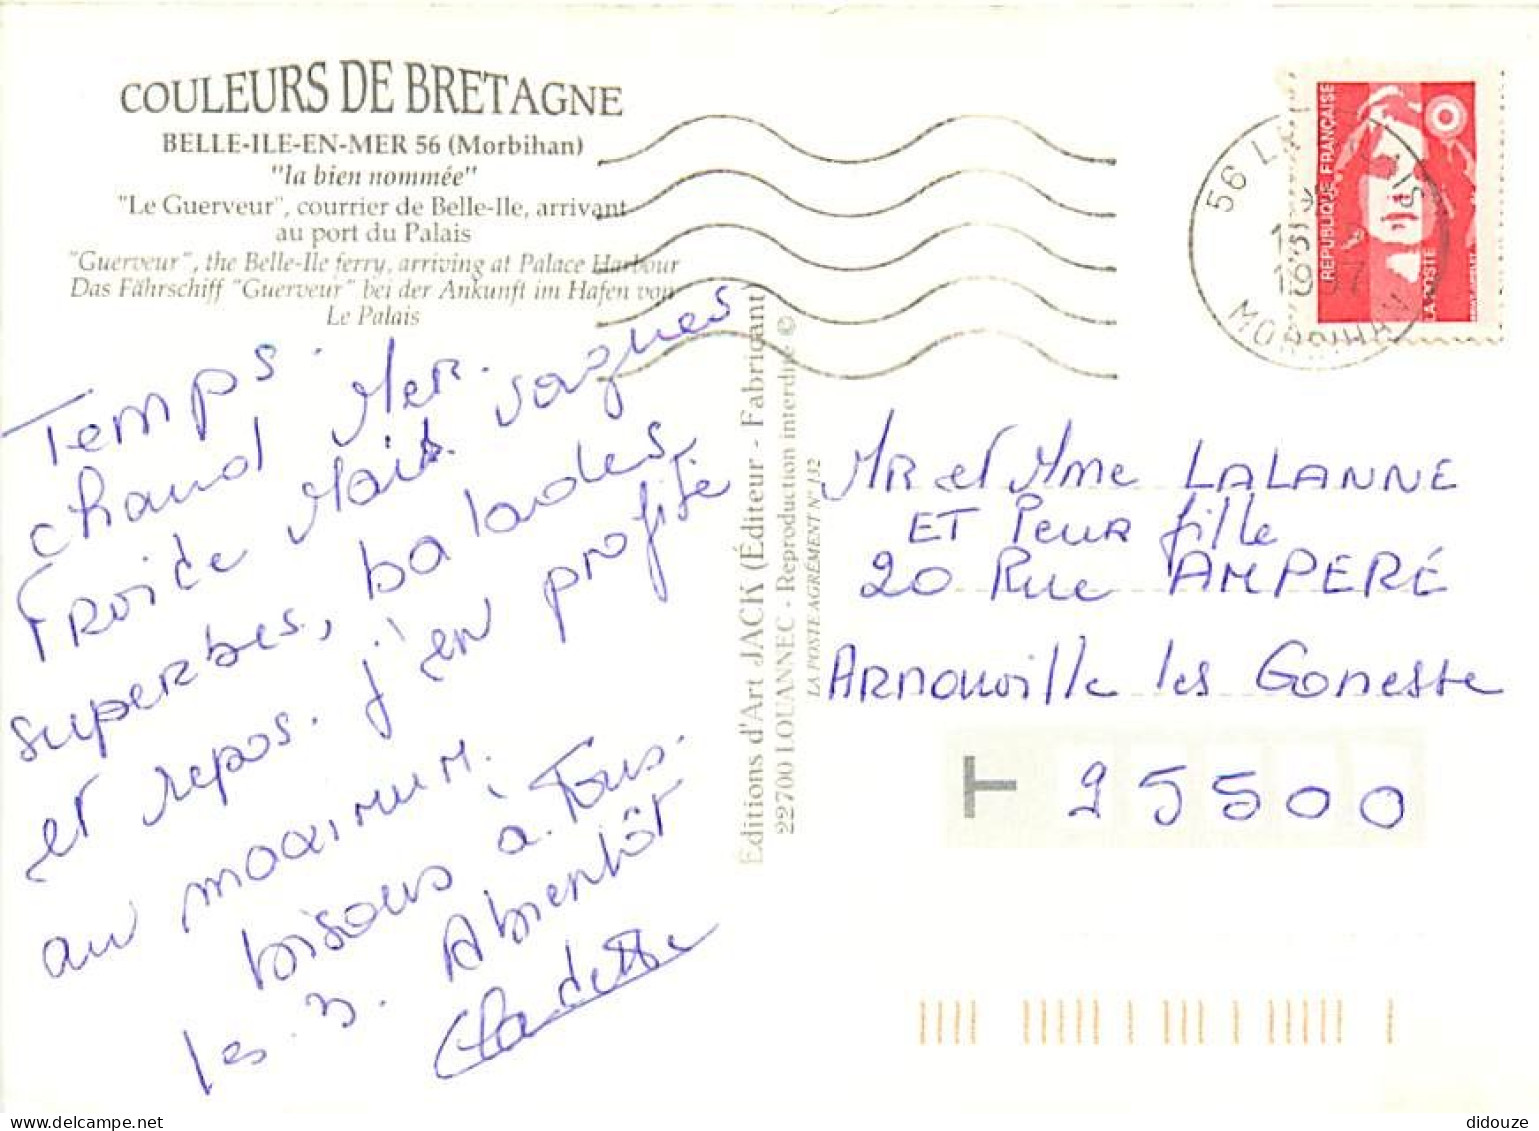 COULEURS DE BRETAGNE
BELLE-ILE-EN-MER 56 (Morbihan)
"la bien nommée"
"Le Guerveur", courrier de Belle-Ile, arrivant
au port du Palais
"Guerveur", the Belle-Ile ferry, arriving at Palace Harbour
Das Fährschiff "Guerveur" bei der Ankunft im Hafen von
Le Palais
Temps.
chaud Mer.
Froide Mais vagues
superbes, balades,
et repos. j'en profite
au maximum.
bisous à Tous.
les 3. Abientôt
Editions d'Art JACK (Éditeur - Fabricant)
22700 LOUANNEC - Reproduction interdite ©
LA POSTE AGRÉMENT N° 132
56 LE PALAIS
1997
MORBIHAN
RÉPUBLIQUE FRANÇAISE
LA POSTE
MR et Mme LALANNE
ET leur fille
20 Rue AMPERÉ
Arnouville les Gonesse
T 95500
didouze